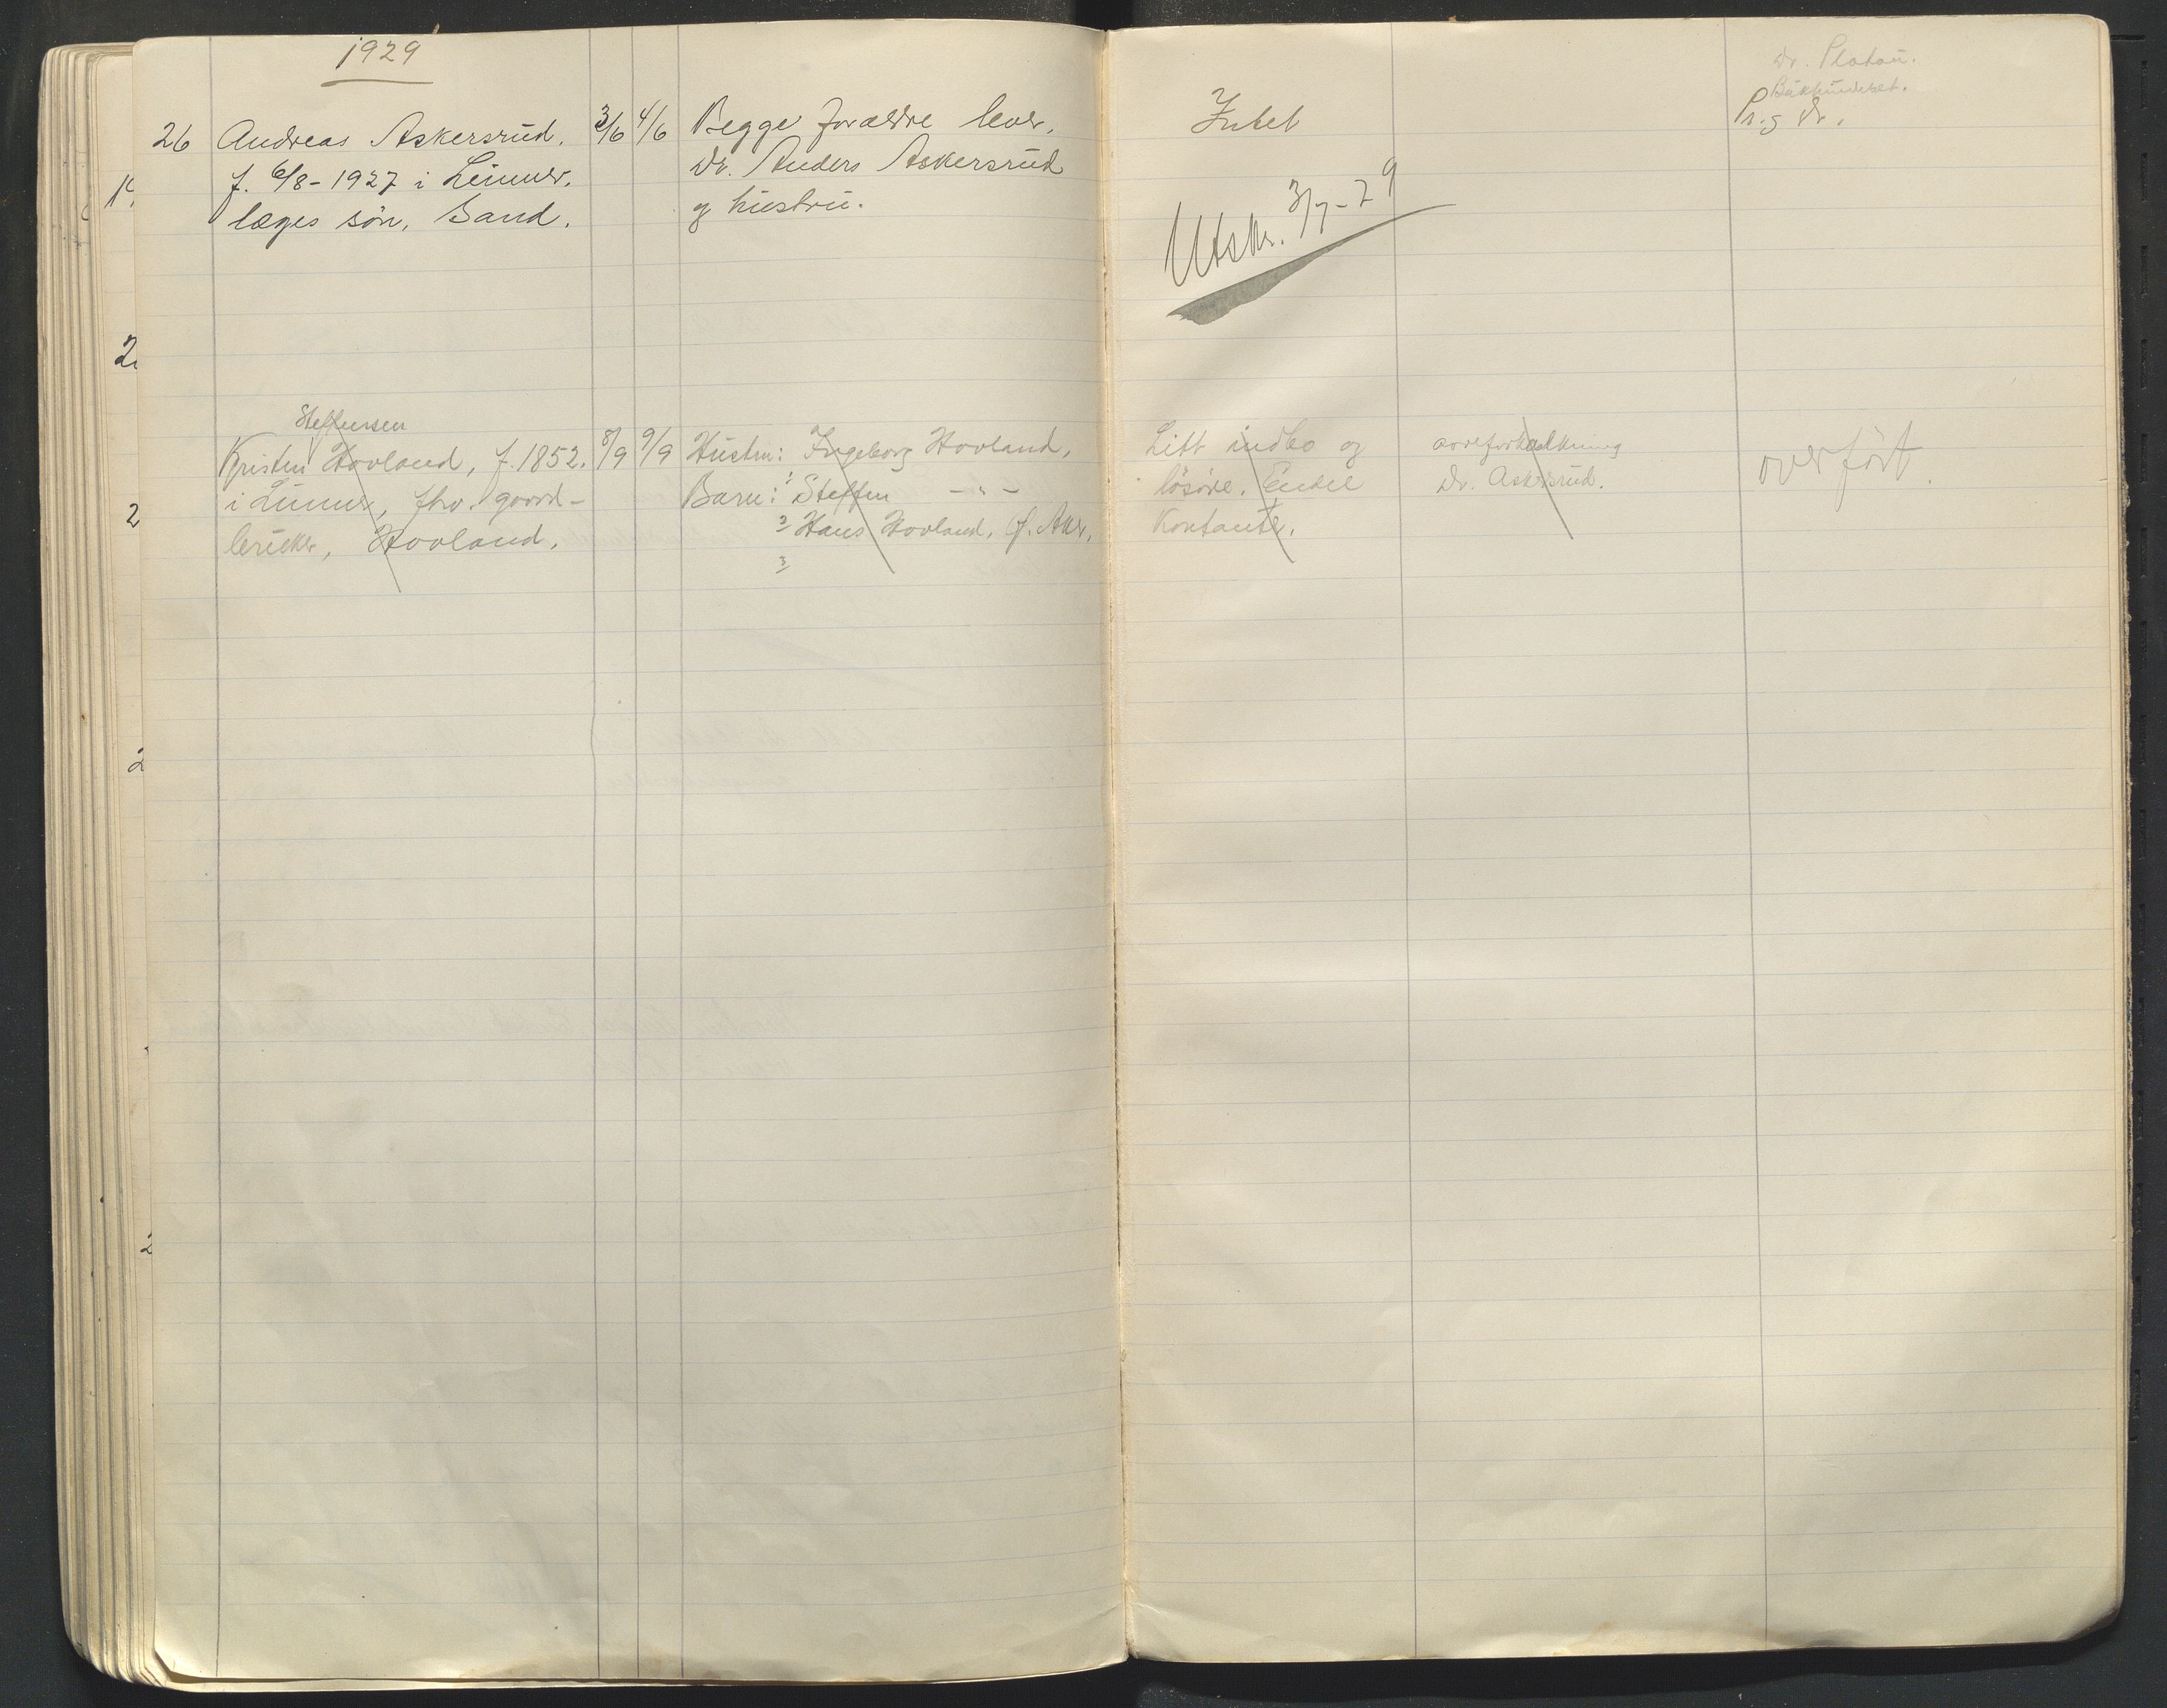 1929
26 Andreas Askersrud. 3/6 4/6 Begge forældre lever. Intet
f. 6/8-1927 i Lunner. Dr. Anders Askersrud
læges søn, Sand. og hustru.
Utskr. 3/7-29
Dr. Platou.
Bukhinderbet.
Pr. g dr.
Steffensen
Kristen Hovland, f. 1852. 8/9 9/9 Hustru: Ingeborg Hovland, Litt indbo og aareforkalkning overført.
i Lunner, fhv. gaard- Barn: 1 Steffen -"- løsøre. Endel Dr. Askersrud.
bruker, Hovland. 2 Hans Hovland, Kontanter.
3